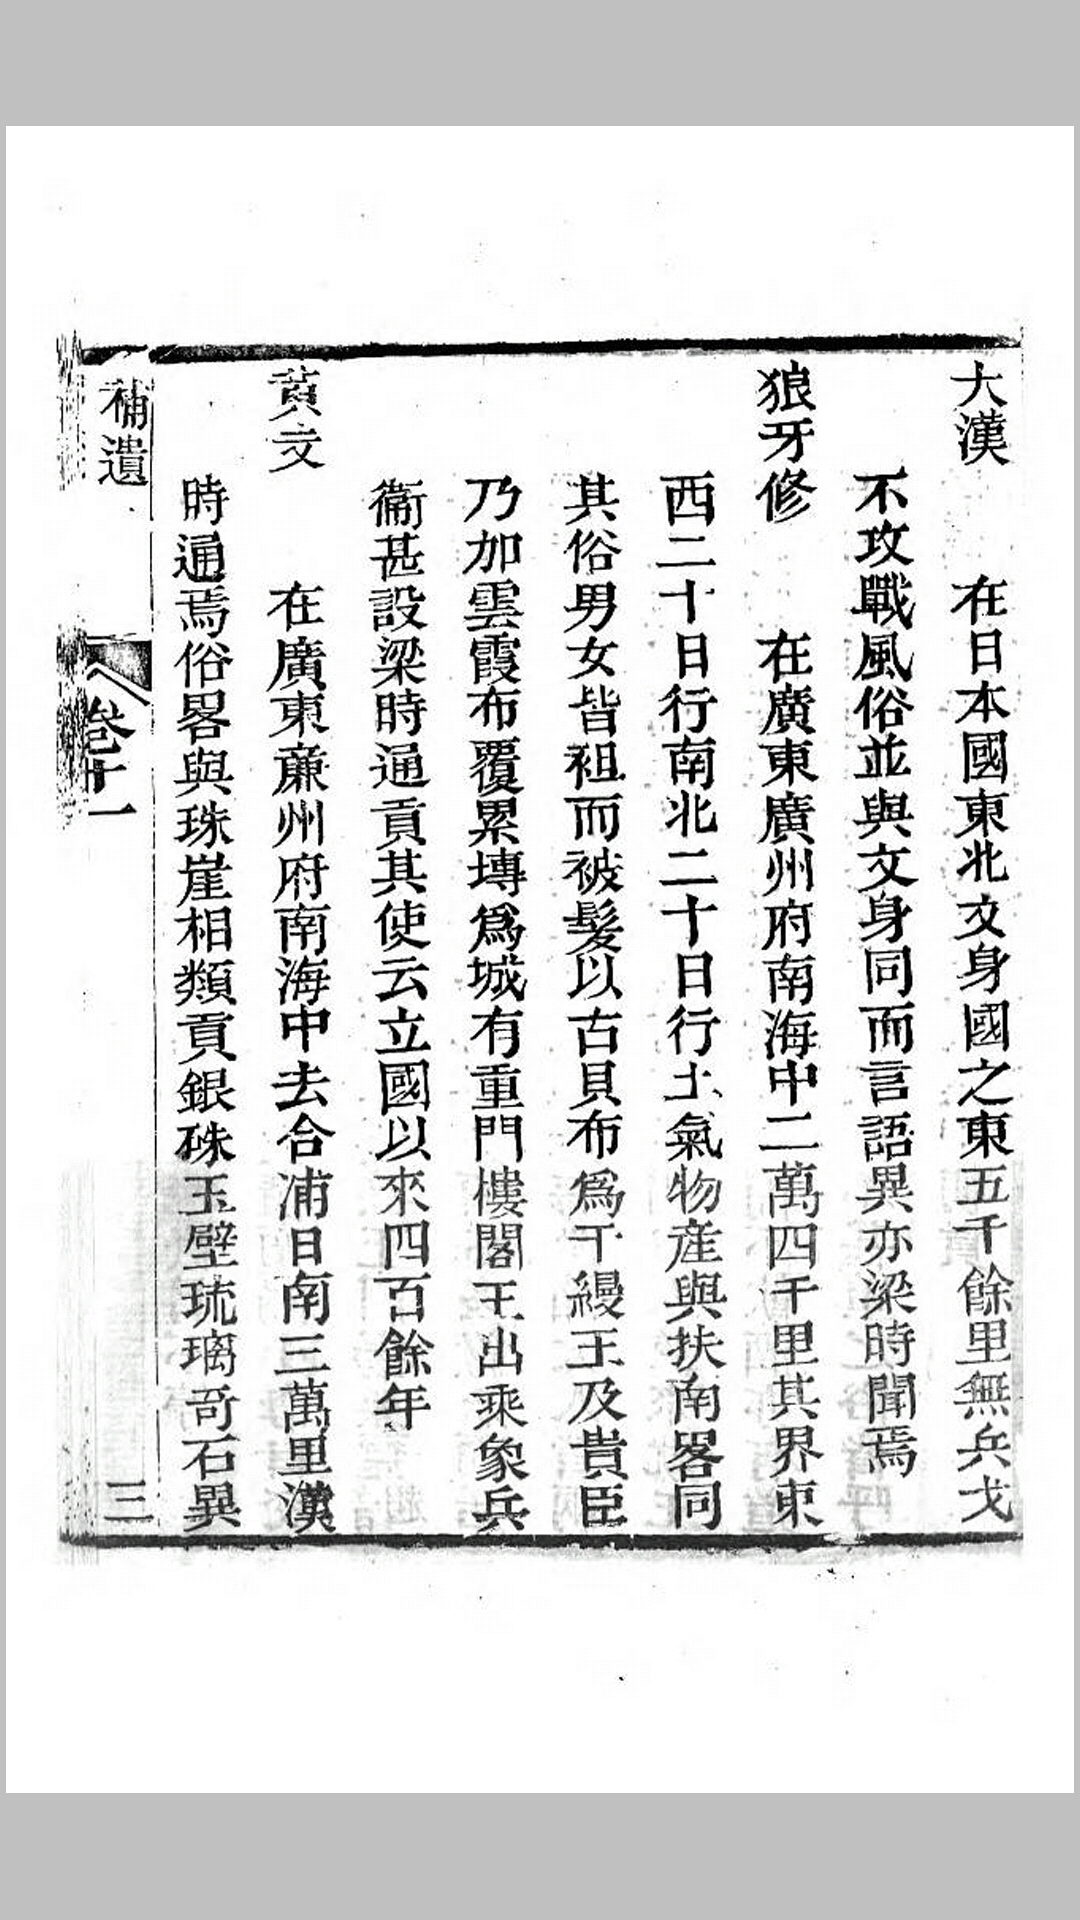 大漢　在日本國東北文身國之東五千餘里無兵戈
不攻戰風俗並與文身同而言語異亦梁時聞焉
狼牙修　在廣東廣州府南海中二萬四千里其界東
西二十日行南北二十日行土氣物產與扶南畧同
其俗男女皆袒而被髮以古貝布爲干縵王及貴臣
乃加雲霞布覆累塼爲城有重門樓閣王出乘象兵
衞甚設梁時通貢其使云立國以來四百餘年
黃支　在廣東亷州府南海中去合浦日南三萬里漢
時通焉俗畧與珠崖相類貢銀硃玉壁琉璃奇石異
補遺　卷十一　三